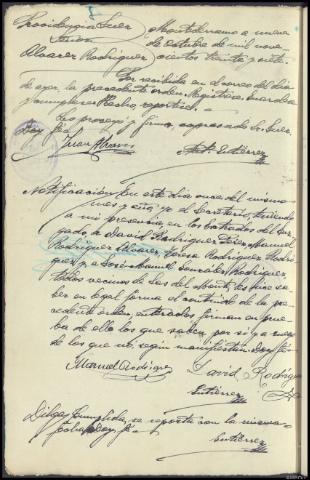 Providencia Juez
Alvarez Rodriguez
Montederramo a nueve
de Octubre de mil nove-
cientos treinta y siete
Por recibida en el correo del día
de ayer la precedente orden, Registrese, guardese
cumplase y hecho, repórtese.
Lo proveyó y firma, expresado Sr. Juez
Doy fé.
Juan Alvarez
Antº Gutiérrez
Notificación. En este día once del mismo
mes y año, yo el Secretario, teniendo
a mi presencia en los Estrados del Juz-
gado, a David Rodriguez Manuel
Rodriguez Alvarez, Teresa Rodriguez Rodri-
guez, y a José Manuel González Rodriguez,
todos vecinos de les hice sa-
ber en legal forma el contenido de la pre-
cedente orden, enterados firman en prue-
ba de ello los que saben, por sí y a ruego
de los que no, según manifiestan. Doy fé.
Manuel Rodriguez
David Rodrigu
Gutiérrez
Diligª Cumplida, se reporta con la misma
fecha, doy fé.
Gutiérrez